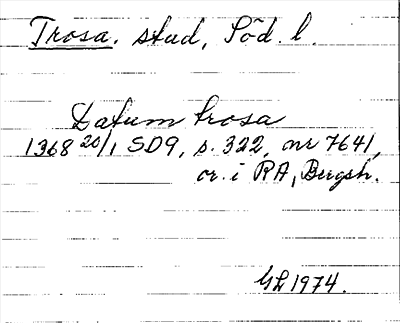 Trosa. stad, Söd. l.
Datum trosa
1368 20/1 SD9, s. 322, nr 7641,
or. i RA, Bergsh.
GL 1974.